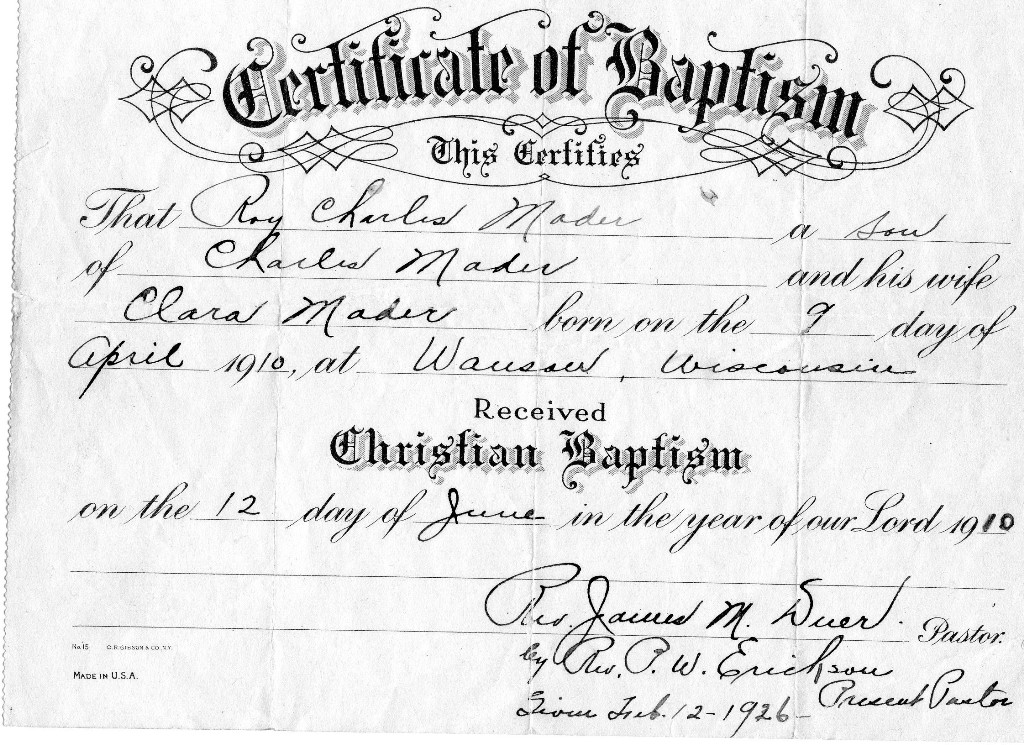 Certificate of Baptism
This Certifies
That Roy Charles Mader a son
of Charles Mader and his wife
Clara Mader born on the 9 day of
April 1910, at Wausau, Wisconsin
Received
Christian Baptism
on the 12 day of June in the year of our Lord 1910
Rev. James M. Duer. Pastor.
by Rev. P. W. Erickson
Present Pastor
Given Feb. 12-1926-
No 15 C.R. GIBSON & CO. N.Y.
MADE IN U.S.A.